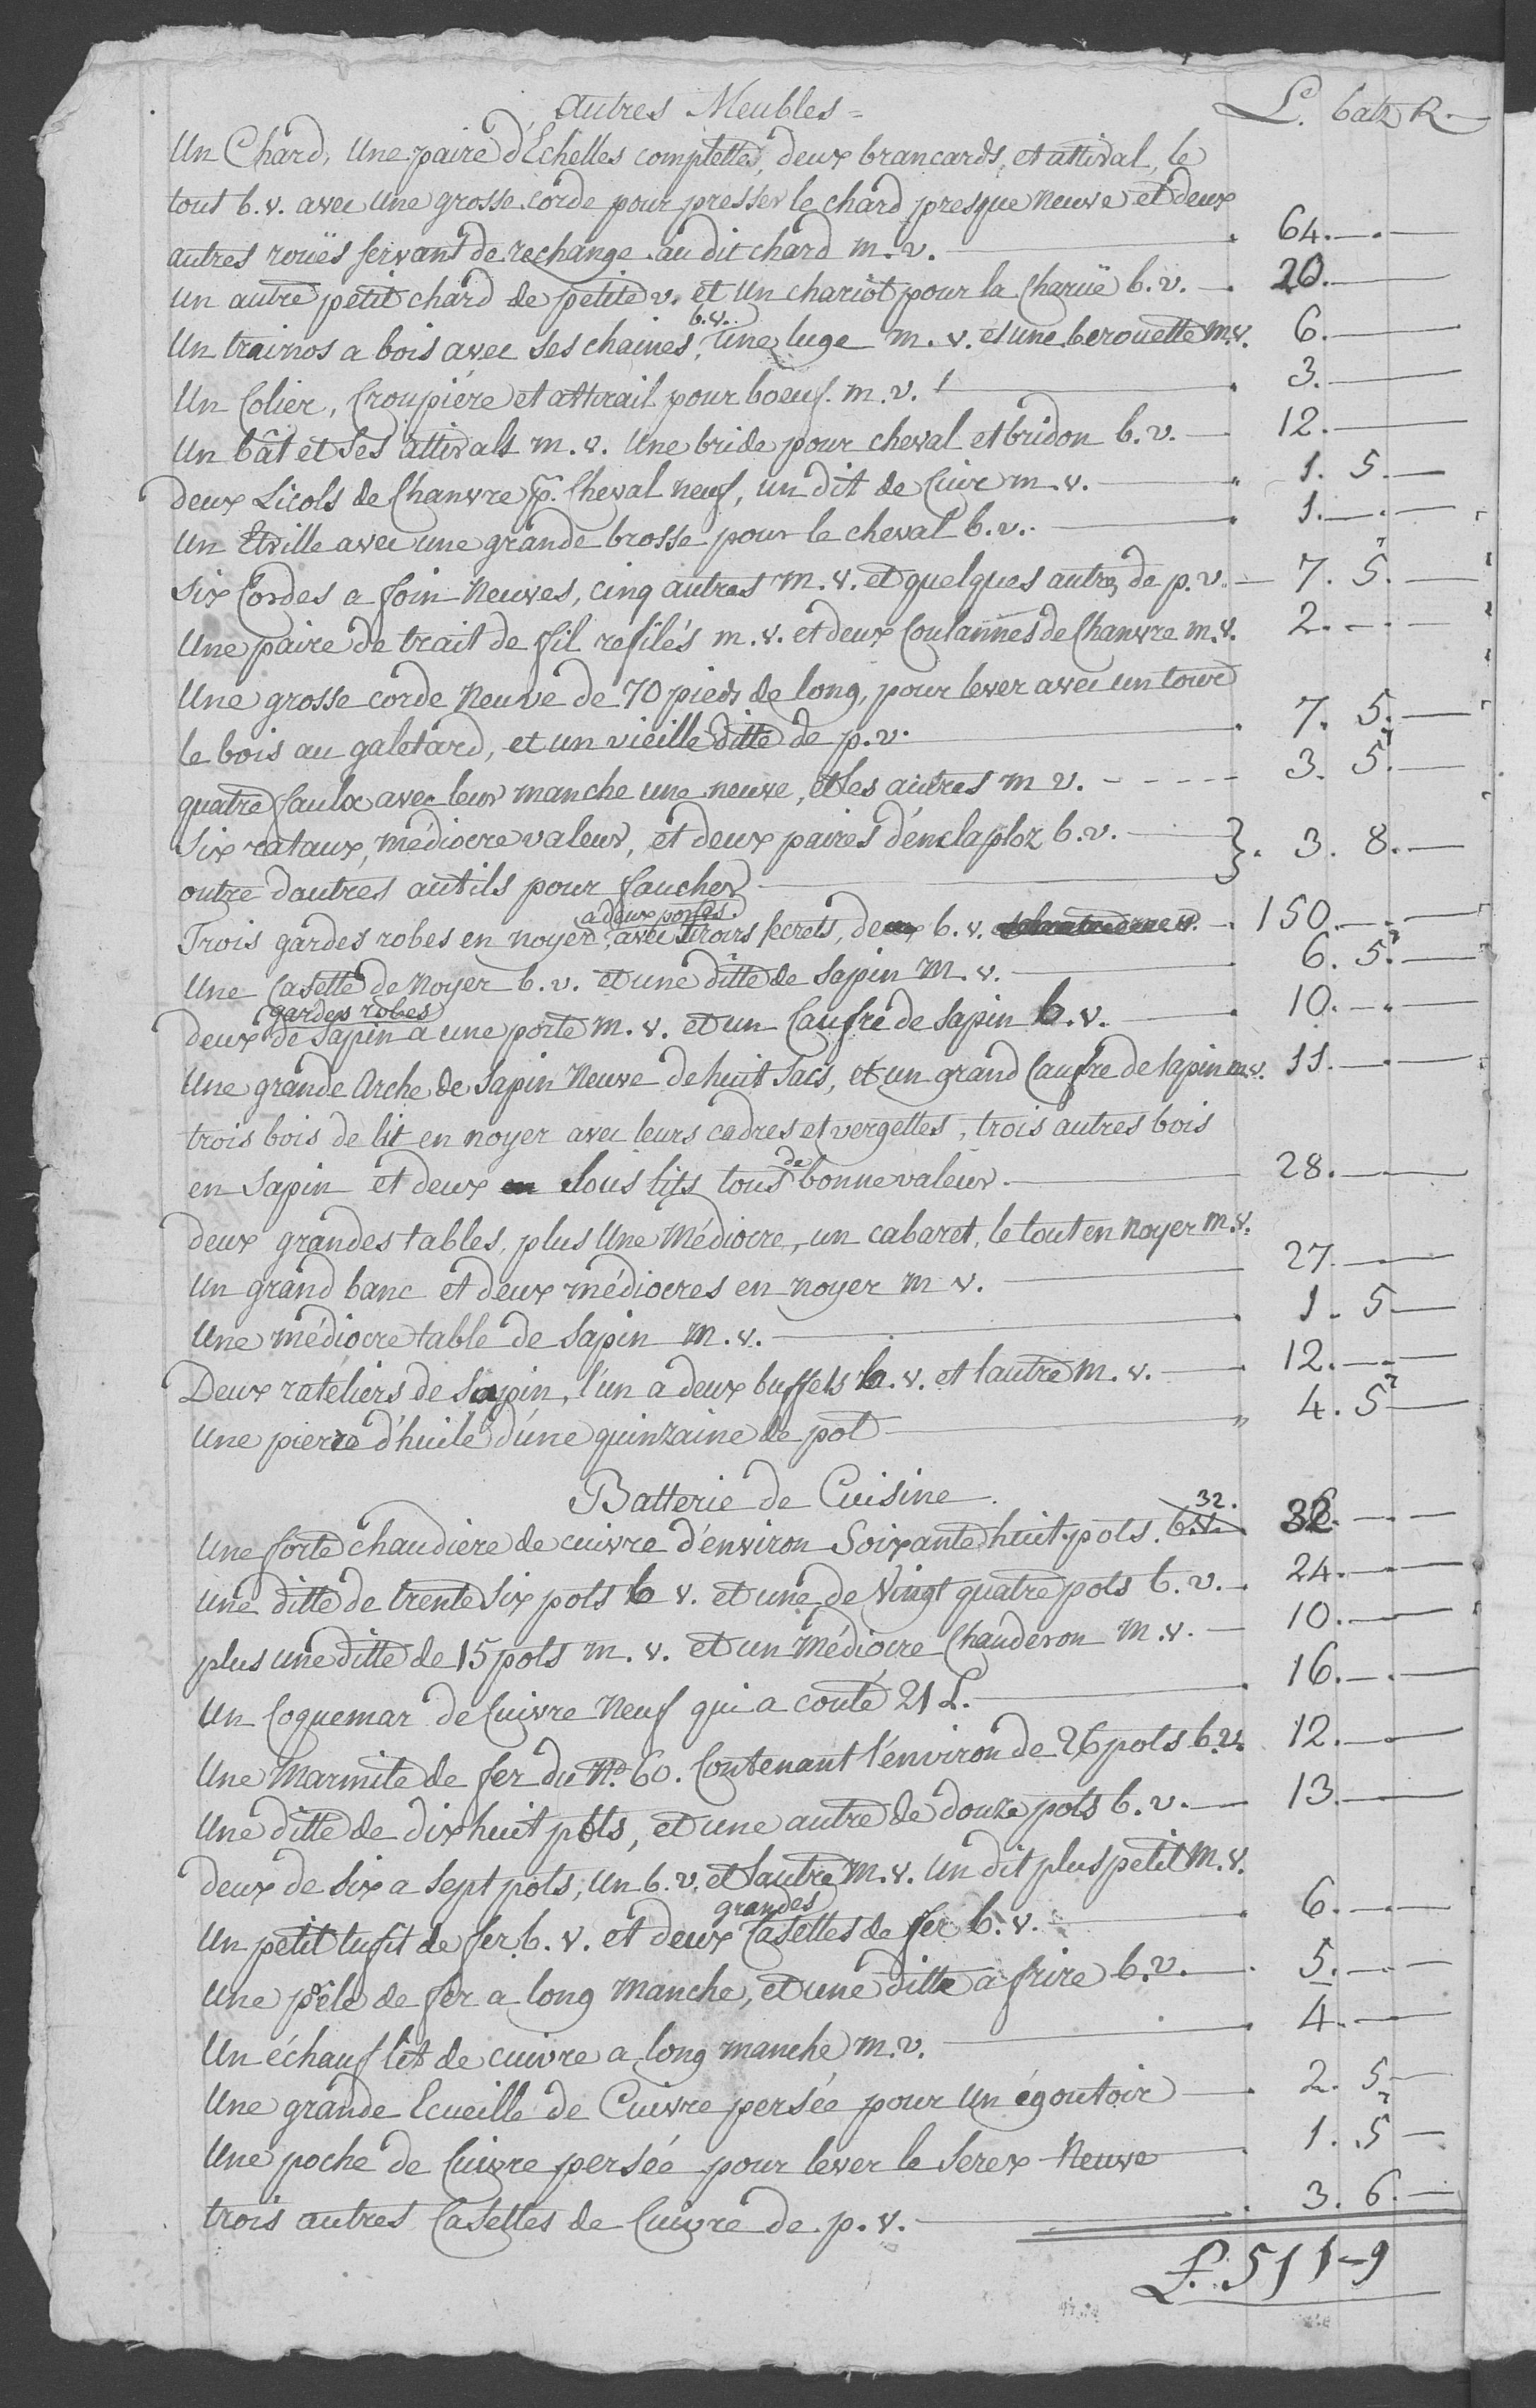 Autres Meubles = L.e batz R.
Un Chard, Une paire d'Echelles complettes, deux brancards, et attiral, le
tout b. v. avec Une grosse corde pour presser le chard presque neuve et deux
autres rouës servant de rechange au dit chard m. v. 64.
Un autre petit chard de petite v. et Un chariot pour la Charüe b. v. 20.
Un trainos a bois avec ses chaines b. v., Une luge m. v. et une berouette m. v. 6.
Un Colier, Croupiére et attirail pour boeuf m. v. 3.
Un bât et ses attirals m. v. Une bride pour cheval et bridon b. v. 12.
deux Licols de Chanvre p.r Cheval neuf, un dit de Cuir m. v. 1. 5.
Un Etrille avec une grande brosse pour le cheval b. v. 1.
Six Cordes a foin Neuves, cinq autres m. v. et quelques autres de p. v. 7. 5.
Une paire de trait de fil refilés m. v. et deux Coulannes de Chanvre m. v. 2.
Une grosse corde Neuve de 70 pieds de long, pour lever avec un tour
le bois au galetard, et un vieille ditte de p. v. 7. 5.
quatre faulx avec leur manche une neuve, et les autres m v. 3. 5.
Six rataux, médiocre valeur, et deux paires d'enclaploz b. v.
outre dautres autils pour faucher } 3. 8.
Trois gardes robes en noyer, a deux portes. avec tiroirs secrets, de b. v. 150.
Une Casette de Noyer b. v. et une ditte de Sapin m. v. 6. 5.
deux gardes robes de Sapin a une porte m. v. et un Caufre de Sapin b. v. 10.
Une grande Arche de Sapin Neuve de huit Sacs, et un grand Caufre de sapin m. v. 11.
trois bois de lit en noyer avec leurs cadres et vergettes, trois autres bois
en Sapin et deux en sous lits tous de bonne valeur 28.
deux grandes tables, plus Une Médiocre, un cabaret, le tout en Noyer m. v.
Un grand banc et deux médiocres en noyer m v. 27.
Une médiocre table de Sapin m. v. 1. 5
Deux rateliers de Sapin, l'un a deux buffets b. v. et lautre m. v. 12.
Une pierre d'huile d'une quinzaine de pot 4. 5
Batterie de Cuisine.
Une forte chaudiere de cuivre d'environ Soixante huit pots. b. v. 32. 32.
une ditte de trente Six pots b v. et une de Vingt quatre pots b. v. 24.
plus une ditte de 15 pots m. v. et un Médiocre Chauderon m. v. 10.
Un Coquemar de Cuivre Neuf qui a couté 21 L. 16.
Une Marmite de fer du N.o 60. Contenant l'environ de 26 pots b. v. 12.
Une ditte de dix huit pots, et une autre de douze pots b. v. 13.
deux de six a sept pots, un b. v. et lautre m. v. Un dit plus petit m. v.
Un petit tufit de fer b. v. et deux grandes Casettes de fer b. v. 6.
Une pêle de fer a long manche, et une ditte a frire b. v. 5.
Un échauf lit de cuivre a long manche m. v. 4.
Une grande Ecueille de Cuivre persée pour Un égoutoir 2. 5
Une poche de Cuivre persée pour lever le Serex Neuve 1. 5
trois autres Casettes de Cuivre de p. v. 3. 6.
L. 511-9